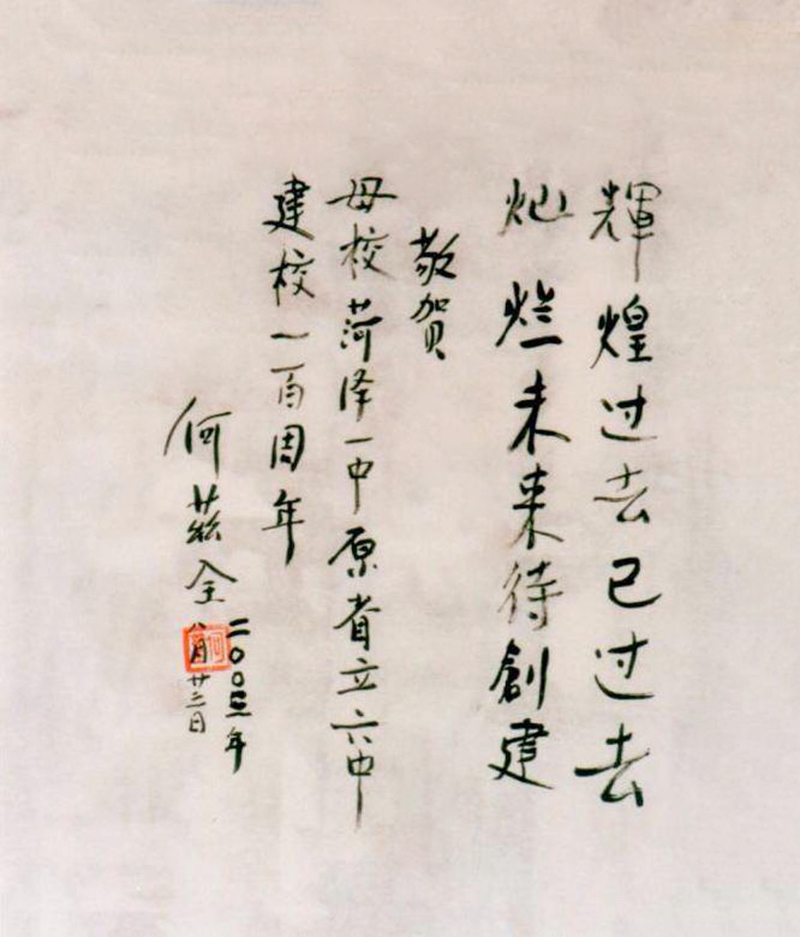 輝煌过去已过去
灿烂未来待創建
敬賀
母校菏泽一中原省立六中
建校一百周年
何兹全
二〇〇三年
八月廿三日